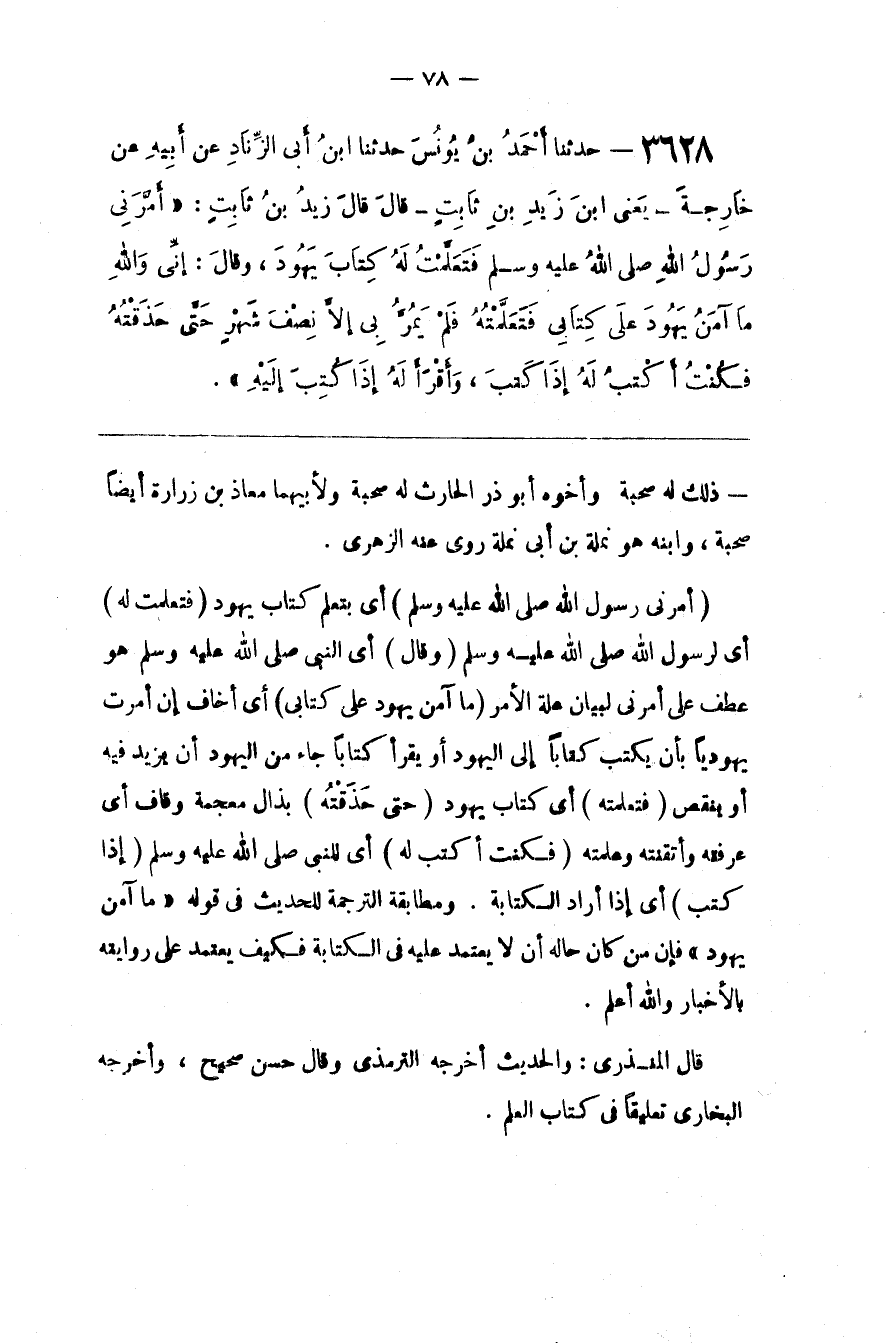 — ٧٨ —
٣٦٢٨ — حدثنا أَحْمَدُ بنُ يُونُسَ حدثنا ابنُ أَبى الزِّنَادِ عن أَبِيهِ عن
خَارِجـةَ ـ يَعنى ابنَ زَيدِ بنِ ثابِتٍ ـ قالَ قالَ زيدُ بنُ ثابِتٍ : « أَمَرَنِى
رَسُولُ اللهِ صلى اللهُ عليه وسـلم فَتَعَلَّمْتُ لَهُ كِتَابَ يَهُودَ ، وقالَ : إنِّى وَاللهِ
مَا آمَنُ يَهُودَ علَى كِتَابِى فَتَعَلَّمْتُهُ فَلَمْ يَمُرَّ بِى إلاَّ نِصْفَ شَهْرٍ حَتَّى حَذَقْتُهُ
فـكُنْتُ أَكْتبُ لَهُ إذَا كَتبَ ، وَأَقْرَأُ لَهُ إذَا كُتِبَ إلَيْهِ » .
— ذلك له صحبة وأخوه أبو ذر الحارث له صحبة ولأبيهما معاذ بن زرارة أيضاً
صحبة ، وابنه هو نملة بن أبى نملة روى عنه الزهرى .
( أمرنى رسول الله صلى الله عليه وسلم ) أى بتعلم كتاب يهود ( فتعلمت له )
أى لرسول الله صلى الله عليـه وسلم ( وقال ) أى النبى صلى الله عليه وسلم هو
عطف على أمرنى لبيان علة الأمر ( ما آمن يهود على كتابى ) أى أخاف إن أمرت
يهودياً بأن يكتب كتاباً إلى اليهود أو يقرأ كتاباً جاء من اليهود أن يزيد فيه
أو ينقص ( فتعلمته ) أى كتاب يهود ( حتى حَذَقْتُهُ ) بذال معجمة وقاف أى
عرفته وأتقنته وعلمته ( فـكنت أكتب له ) أى للنبى صلى الله عليه وسلم ( إذا
كتب ) أى إذا أراد الـكتابة . ومطابقة الترجمة للحديث فى قوله « ما آمن
يهود » فإن من كان حاله أن لا يعتمد عليه فى الـكتابة فـكيف يعتمد على روايته
بالأخبار والله أعلم .
قال المنـذرى : والحديث أخرجه الترمذى وقال حسن صحيح ، وأخرجه
البخارى تعليقاً فى كتاب العلم .